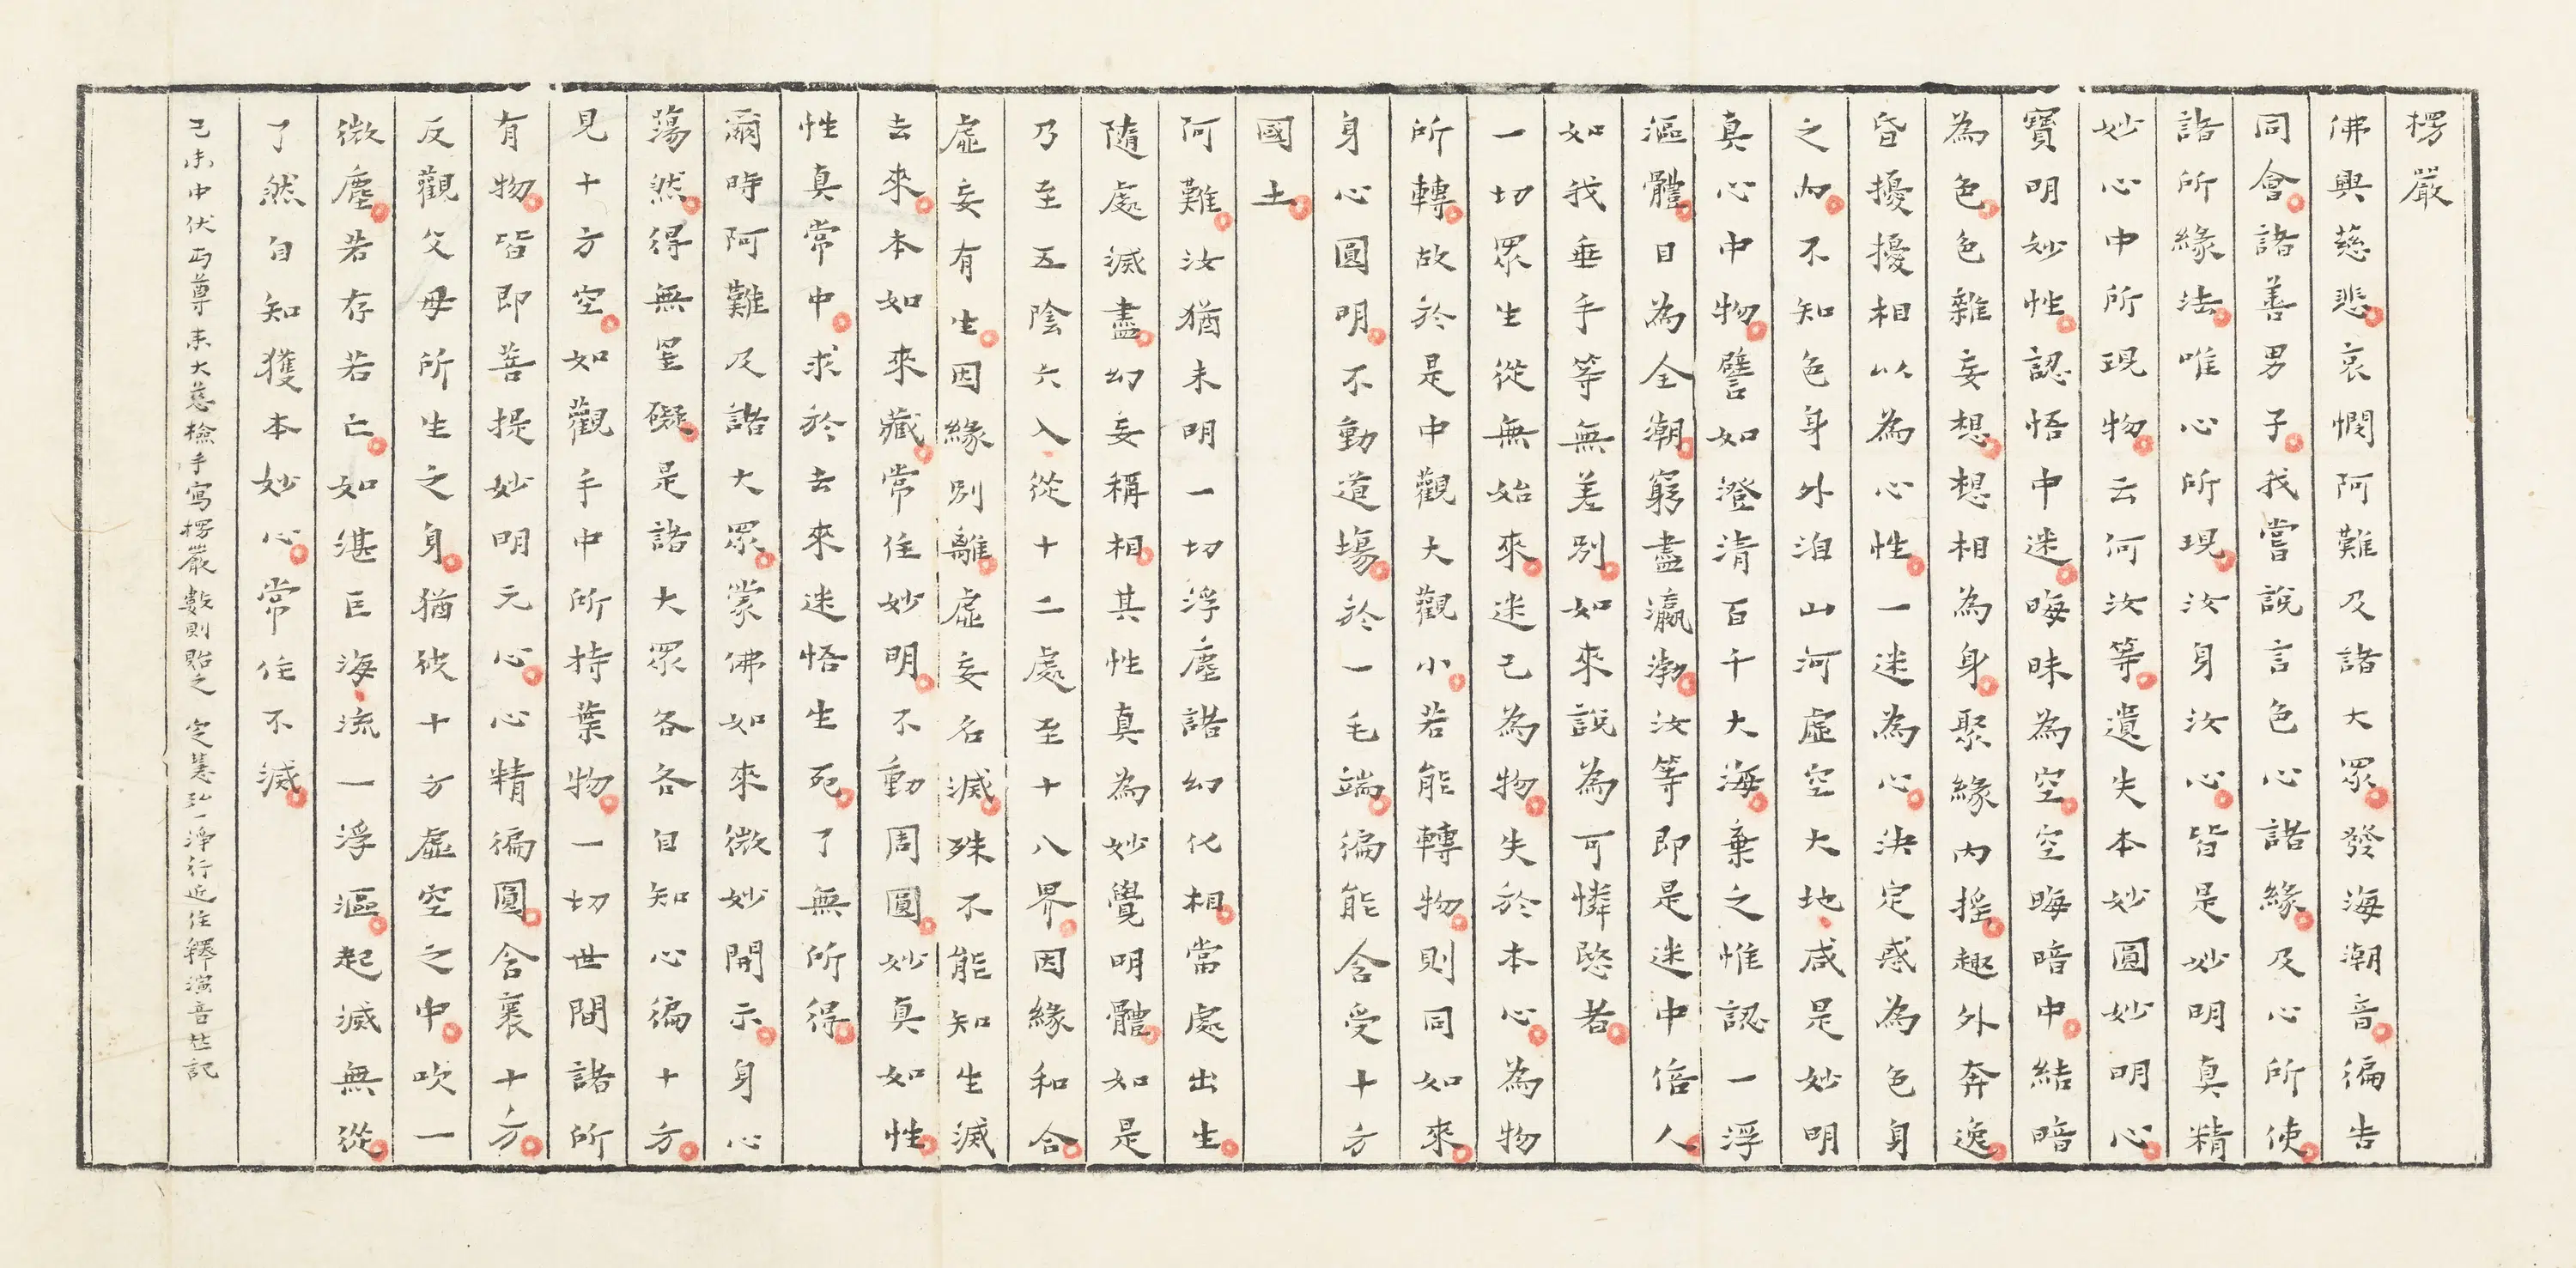 楞嚴
佛興慈悲哀憫阿難及諸大眾發海潮音徧告
同會諸善男子我嘗說言色心諸緣及心所使
諸所緣法唯心所現汝身汝心皆是妙明真精
妙心中所現物云何汝等遺失本妙圓妙明心
寶明妙性認悟中迷晦昧為空空晦暗中結暗
為色色雜妄想想相為身聚緣內搖趣外奔逸
昏擾擾相以為心性一迷為心決定惑為色身
之內不知色身外洎山河虛空大地咸是妙明
真心中物譬如澄清百千大海棄之惟認一浮
漚體目為全潮窮盡瀛渤汝等即是迷中倍人
如我垂手等無差別如來說為可憐愍者
一切眾生從無始來迷己為物失於本心為物
所轉故於是中觀大觀小若能轉物則同如來
身心圓明不動道場於一毛端徧能含受十方
國土
阿難汝猶未明一切浮塵諸幻化相當處出生
隨處滅盡幻妄稱相其性真為妙覺明體如是
乃至五陰六入從十二處至十八界因緣和合
虛妄有生因緣別離虛妄名滅殊不能知生滅
去來本如來藏常住妙明不動周圓妙真如性
性真常中求於去來迷悟生死了無所得
爾時阿難及諸大眾蒙佛如來微妙開示身心
蕩然得無罣礙是諸大眾各各自知心徧十方
見十方空如觀手中所持葉物一切世間諸所
有物皆即菩提妙明元心心精徧圓含裹十方
反觀父母所生之身猶彼十方虛空之中吹一
微塵若存若亡如湛巨海流一浮漚起滅無從
了然自知獲本妙心常住不滅
己未中伏丏尊來大慈檢手寫楞嚴數則貽之 定慧弘一淨行近住釋演音並記